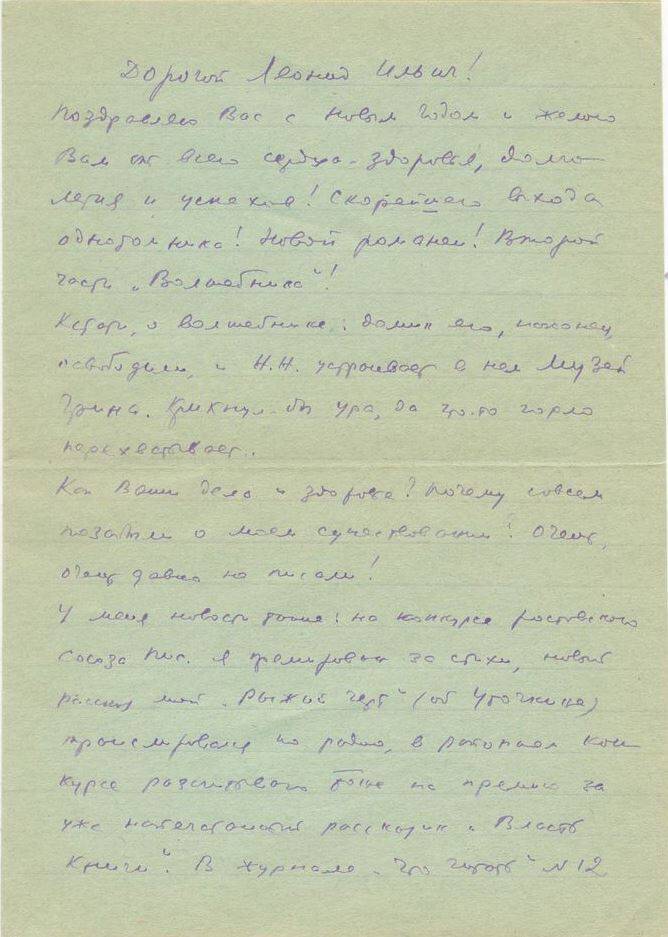 Дорогой Леонид Ильич!
Поздравляю Вас с Новым Годом и желаю
Вам от всего сердца - здоровья, долго-
летия и успехов! Скорейшего выхода
однотомника! Новой романеи! Второй
части „Волшебника"!
Кстати, о волшебнике: домик его, наконец,
освободили, и Н.Н. устраивает в нем Музей
Грина. Крикнул бы ура, да что-то горло
перехватывает..
Как Ваши дела и здоровье? Почему совсем
позабыли о моем существовании? Очень,
очень давно не писали!
У меня новости такие: на конкурсе ростовского
союза пис. я премирован за стихи, новый
рассказ мой „Рыжий черт" (об Уточкине)
транслировался по радио, в районном кон-
курсе рассчитываю тоже на премию за
уже напечатанный рассказик „Власть
Книги". В журнале „Что читать" N 12